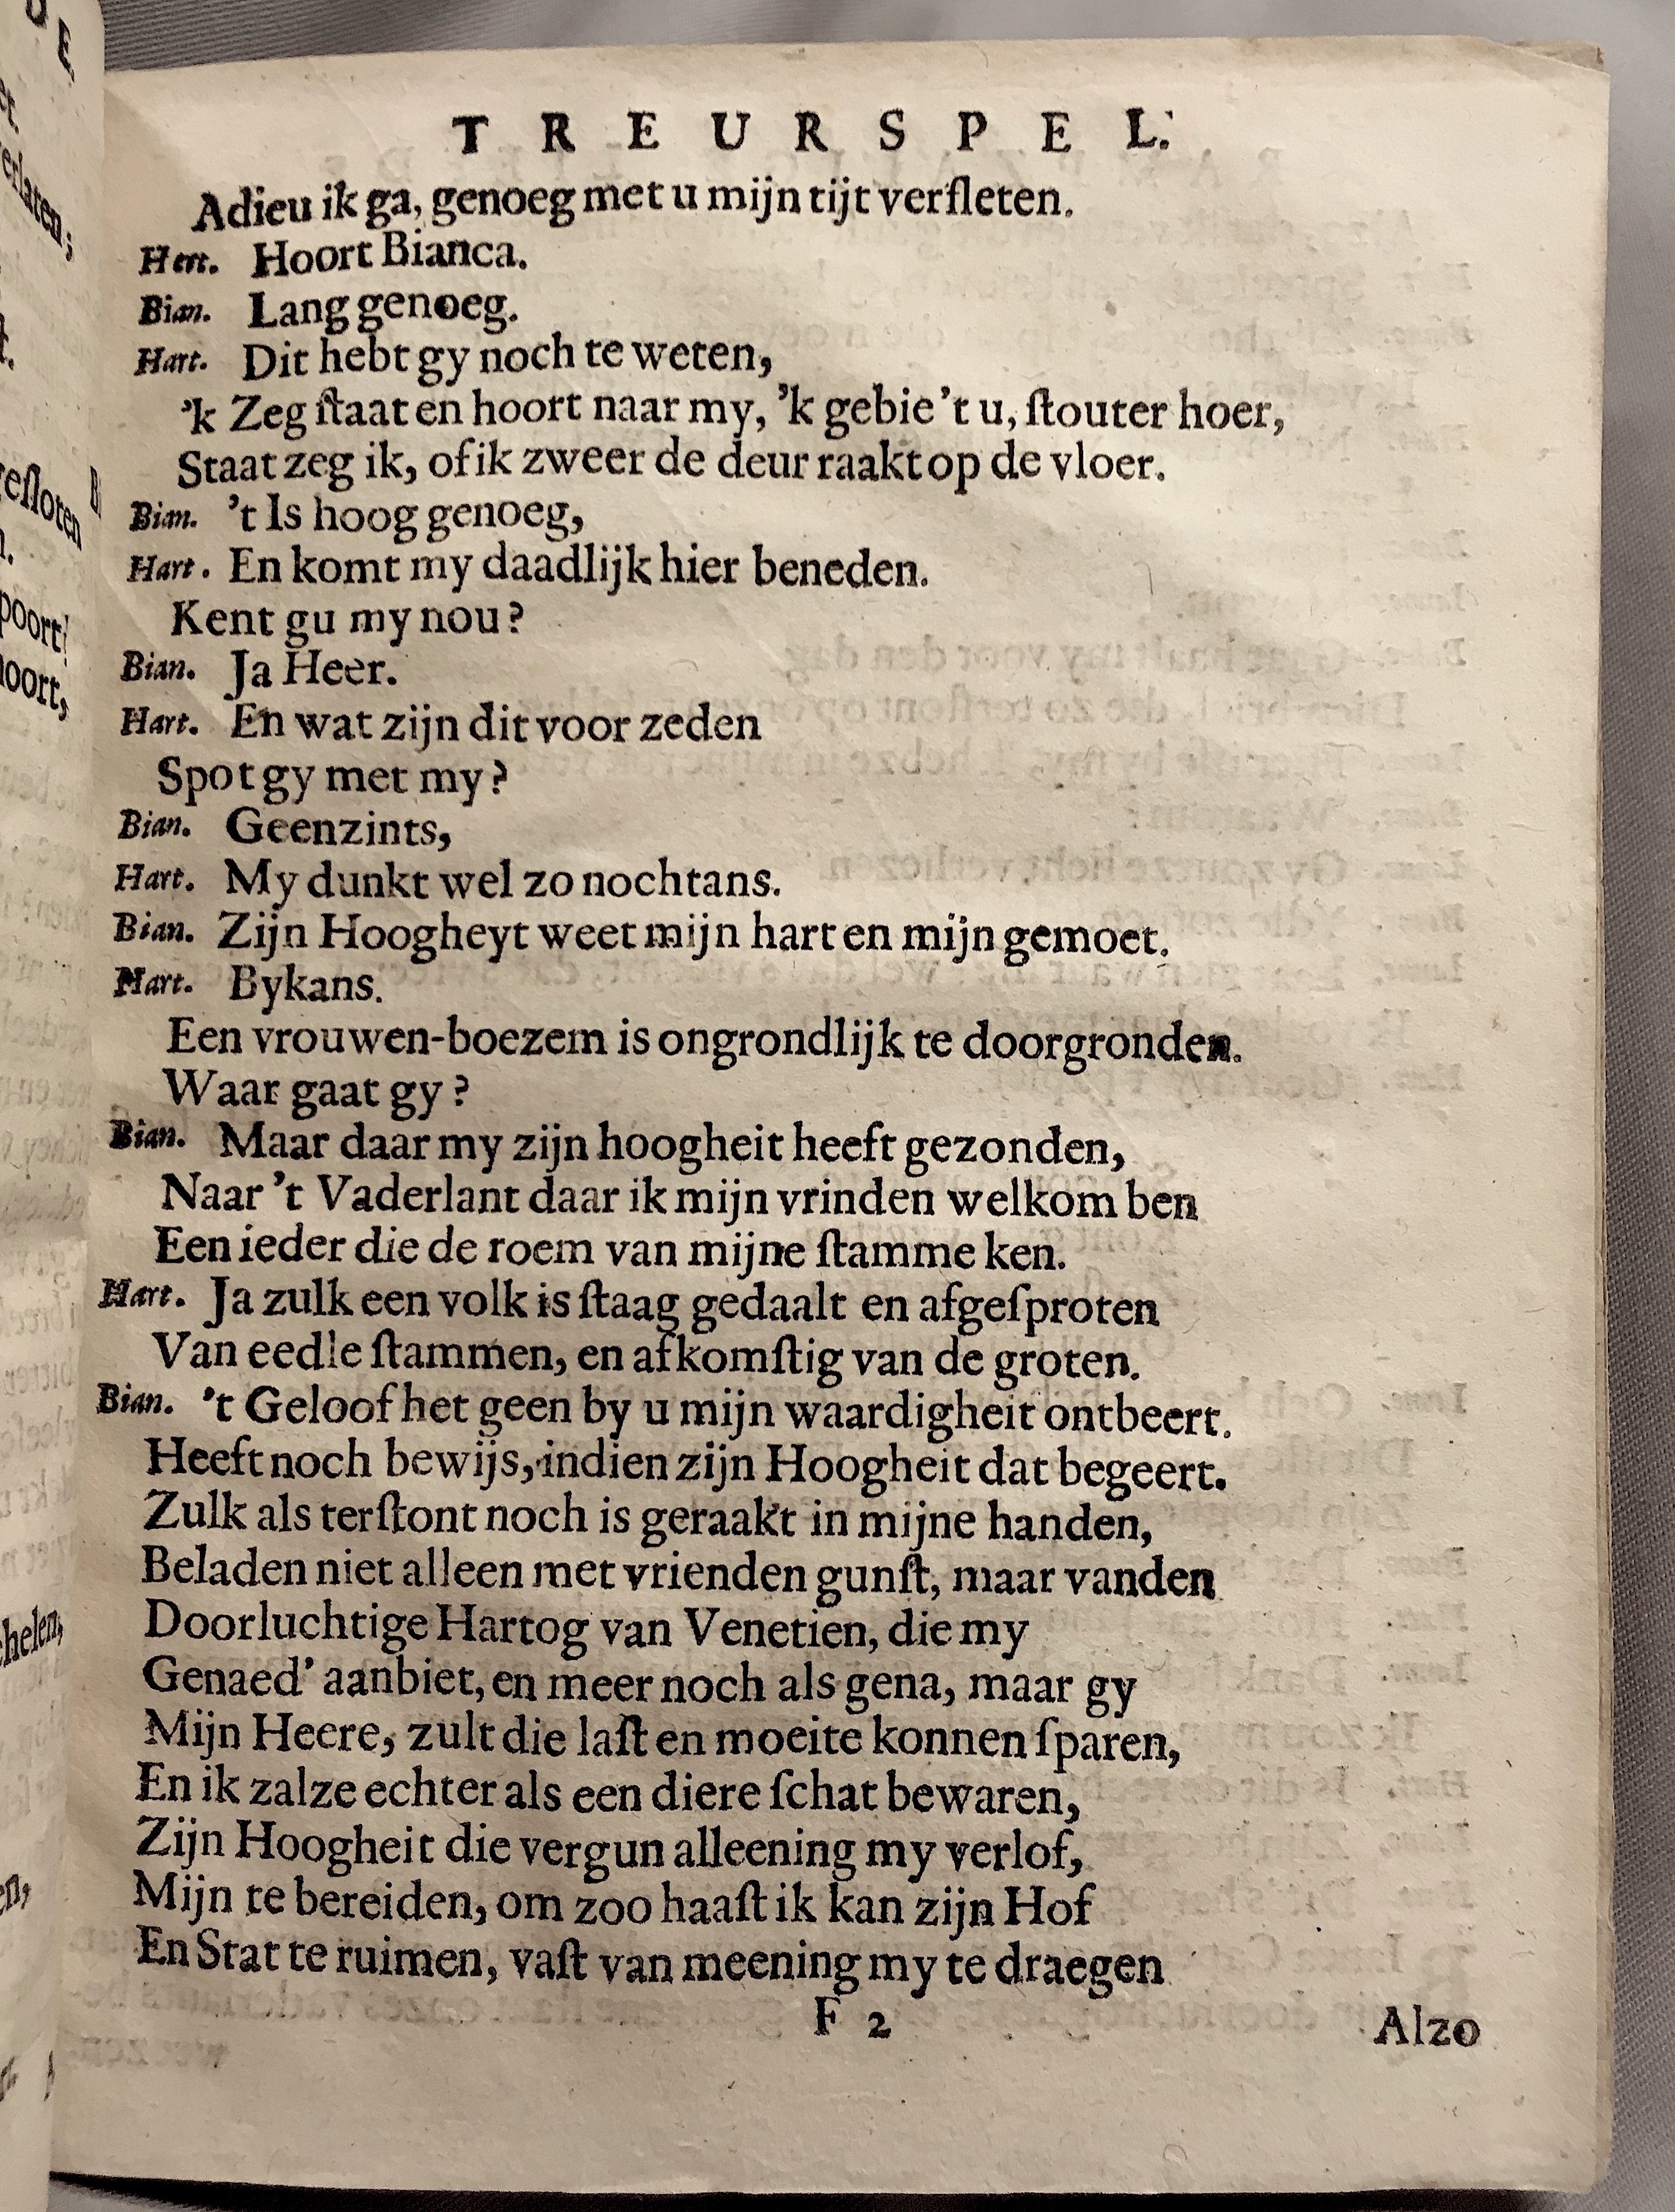 TREURSPEL.
Adieu ik ga, genoeg met u mijn tijt verſleten.
Hert. Hoort Bianca.
Bian. Lang genoeg.
Hart. Dit hebt gy noch te weten,
'k Zeg ſtaat en hoort naar my, 'k gebie 't u, ſtouter hoer,
Staat zeg ik, of ik zweer de deur raakt op de vloer.
Bian. 't Is hoog genoeg,
Hart. En komt my daadlijk hier beneden.
Kent gu my nou?
Bian. Ja Heer.
Hart. En wat zijn dit voor zeden
Spot gy met my?
Bian. Geenzints,
Hart. My dunkt wel zo nochtans.
Bian. Zijn Hoogheyt weet mijn hart en mijn gemoet.
Hart. Bykans.
Een vrouwen-boezem is ongrondlijk te doorgronden.
Waar gaat gy?
Bian. Maar daar my zijn hoogheit heeft gezonden,
Naar 't Vaderlant daar ik mijn vrinden welkom ben
Een ieder die de roem van mijne ſtamme ken.
Hart. Ja zulk een volk is ſtaag gedaalt en afgeſproten
Van eedle ſtammen, en afkomſtig van de groten.
Bian. 't Geloof het geen by u mijn waardigheit ontbeert.
Heeft noch bewijs, indien zijn Hoogheit dat begeert.
Zulk als terſtont noch is geraakt in mijne handen,
Beladen niet alleen met vrienden gunſt, maar vanden
Doorluchtige Hartog van Venetien, die my
Genaed' aanbiet, en meer noch als gena, maar gy
Mijn Heere, zult die laſt en moeite konnen ſparen,
En ik zalze echter als een diere ſchat bewaren,
Zijn Hoogheit die vergun alleening my verlof,
Mijn te bereiden, om zoo haaſt ik kan zijn Hof
En Stat te ruimen, vaſt van meening my te draegen
F 2
Alzo